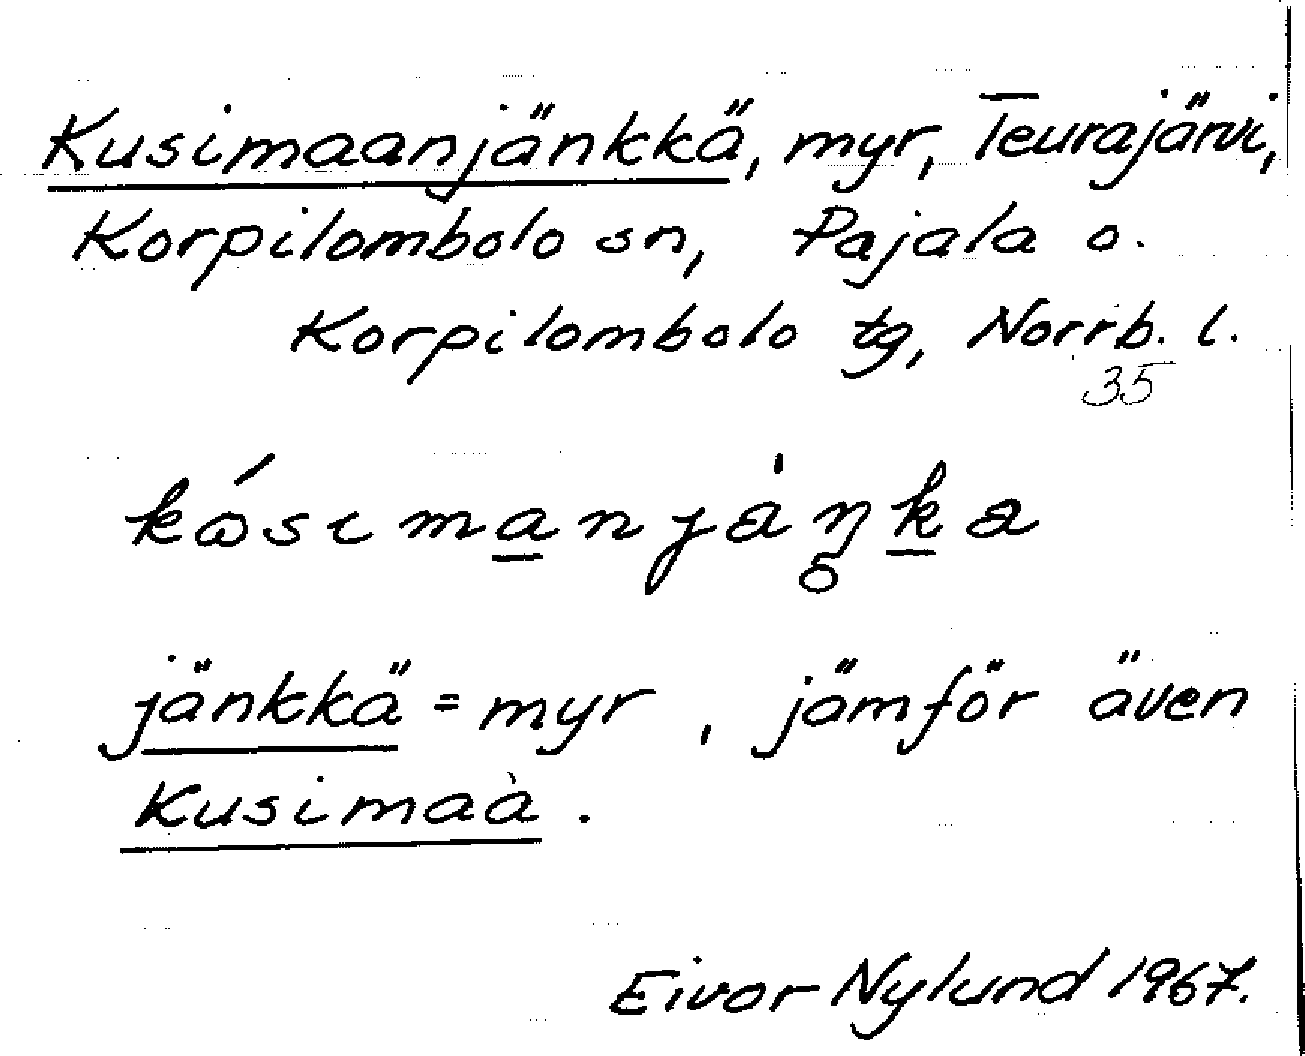 Kusimaanjänkkä, myr, Teurajärvi,
Korpilombolo sn, Pajala o.
Korpilombolo tg, Norrb. l.
35
jänkkä = myr, jämför även
Kusimaa.
Eivor Nylund 1967.